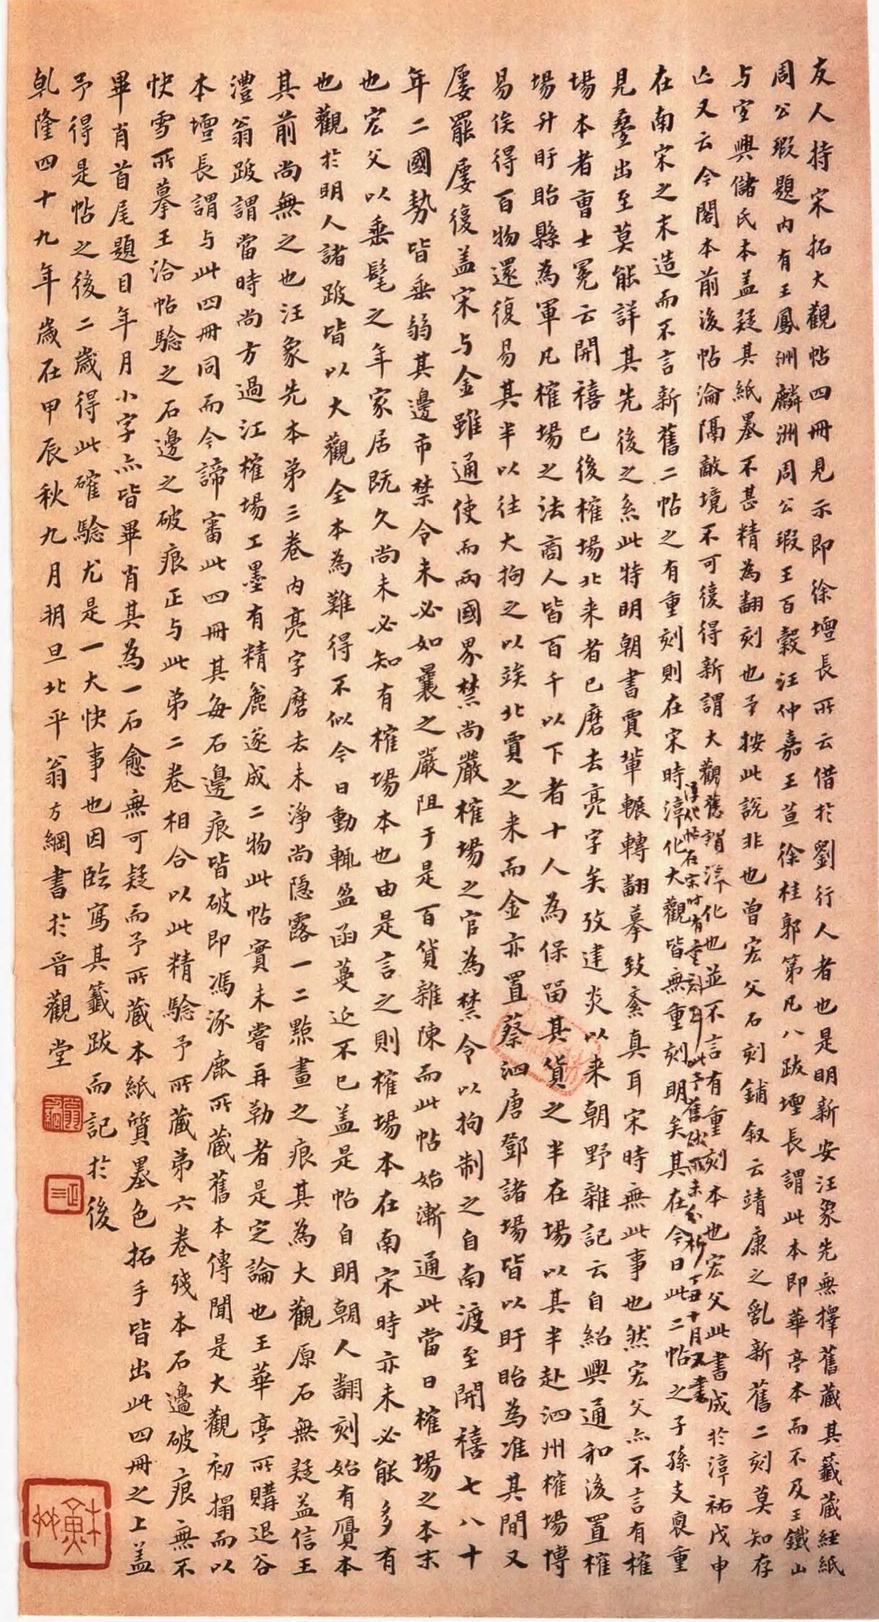 友人持宋拓大觀帖四冊見示即徐壇長所云借於劉行人者也是明新安汪象先無擇舊藏其籤藏經紙
周公瑕題內有王鳳洲麟洲周公瑕王百穀汪仲嘉王荁徐桂郭第凡八跋壇長謂此本即華亭本而不及王鐵山
与宜興儲氏本蓋疑其紙墨不甚精為翻刻也予按此說非也曾宏父石刻鋪叙云靖康之亂新舊二刻莫知存
亾又云今閣本前後帖淪隔敵境不可復得新謂大觀舊謂淳化也並不言有重刻本也宏父此書成於淳祐戊申
淳化帖石宋時有重刻耳此予舊跋所未分析丁酉十月又書
在南宋之末造而不言新舊二帖之有重刻則在宋時淳化大觀皆無重刻明矣其在今日此二帖之子孫支裔重
見疊出至莫能詳其先後之系此特明朝書賈輩輾轉翻摹致紊真耳宋時無此事也然宏父亦不言有榷
場本者曹士冕云開禧已後榷場北来者已磨去亮字矣攷建炎以来朝野雜記云自紹興通和後置榷
場升盱眙縣為軍凡榷場之法商人皆百千以下者十人為保留其貨之半在場以其半赴泗州榷場博
易俟得百物還復易其半以往大拘之以竢北賈之来而金亦置蔡泗唐鄧諸場皆以盱眙為准其間又
屢罷屢復蓋宋与金雖通使而兩國界禁尚嚴榷場之官為禁令以拘制之自南渡至開禧七八十
年二國勢皆垂弱其邊市禁令未必如曩之嚴阻于是百貨雜陳而此帖始漸通此當日榷場之本末
也宏父以垂髦之年家居既久尚未必知有榷場本也由是言之則榷場本在南宋時亦未必能多有
也觀於明人諸跋皆以大觀全本為難得不似今日動輒盈函蔓延不已蓋是帖自明朝人翻刻始有贋本
其前尚無之也汪象先本第三卷內亮字磨去未淨尚隱露一二點畫之痕其為大觀原石無疑益信王
澧翁跋謂當時尚方過江榷場工墨有精麁遂成二物此帖實未嘗再勒者是定論也王華亭所購退谷
本壇長謂与此四冊同而今諦審此四冊其每石邊痕皆破即馮涿鹿所藏舊本傳聞是大觀初搨而以
快雪所摹王洽帖驗之石邊之破痕正与此第二卷相合以此精驗予所藏第六卷殘本石邊破痕無不
畢肖首尾題目年月小字亦皆畢肖其為一石愈無可疑而予所藏本紙質墨色拓手皆出此四冊之上蓋
予得是帖之後二歲得此確驗尤是一大快事也因臨寫其籤跋而記於後
乹隆四十九年歲在甲辰秋九月朔旦北平翁方綱書於晉觀堂